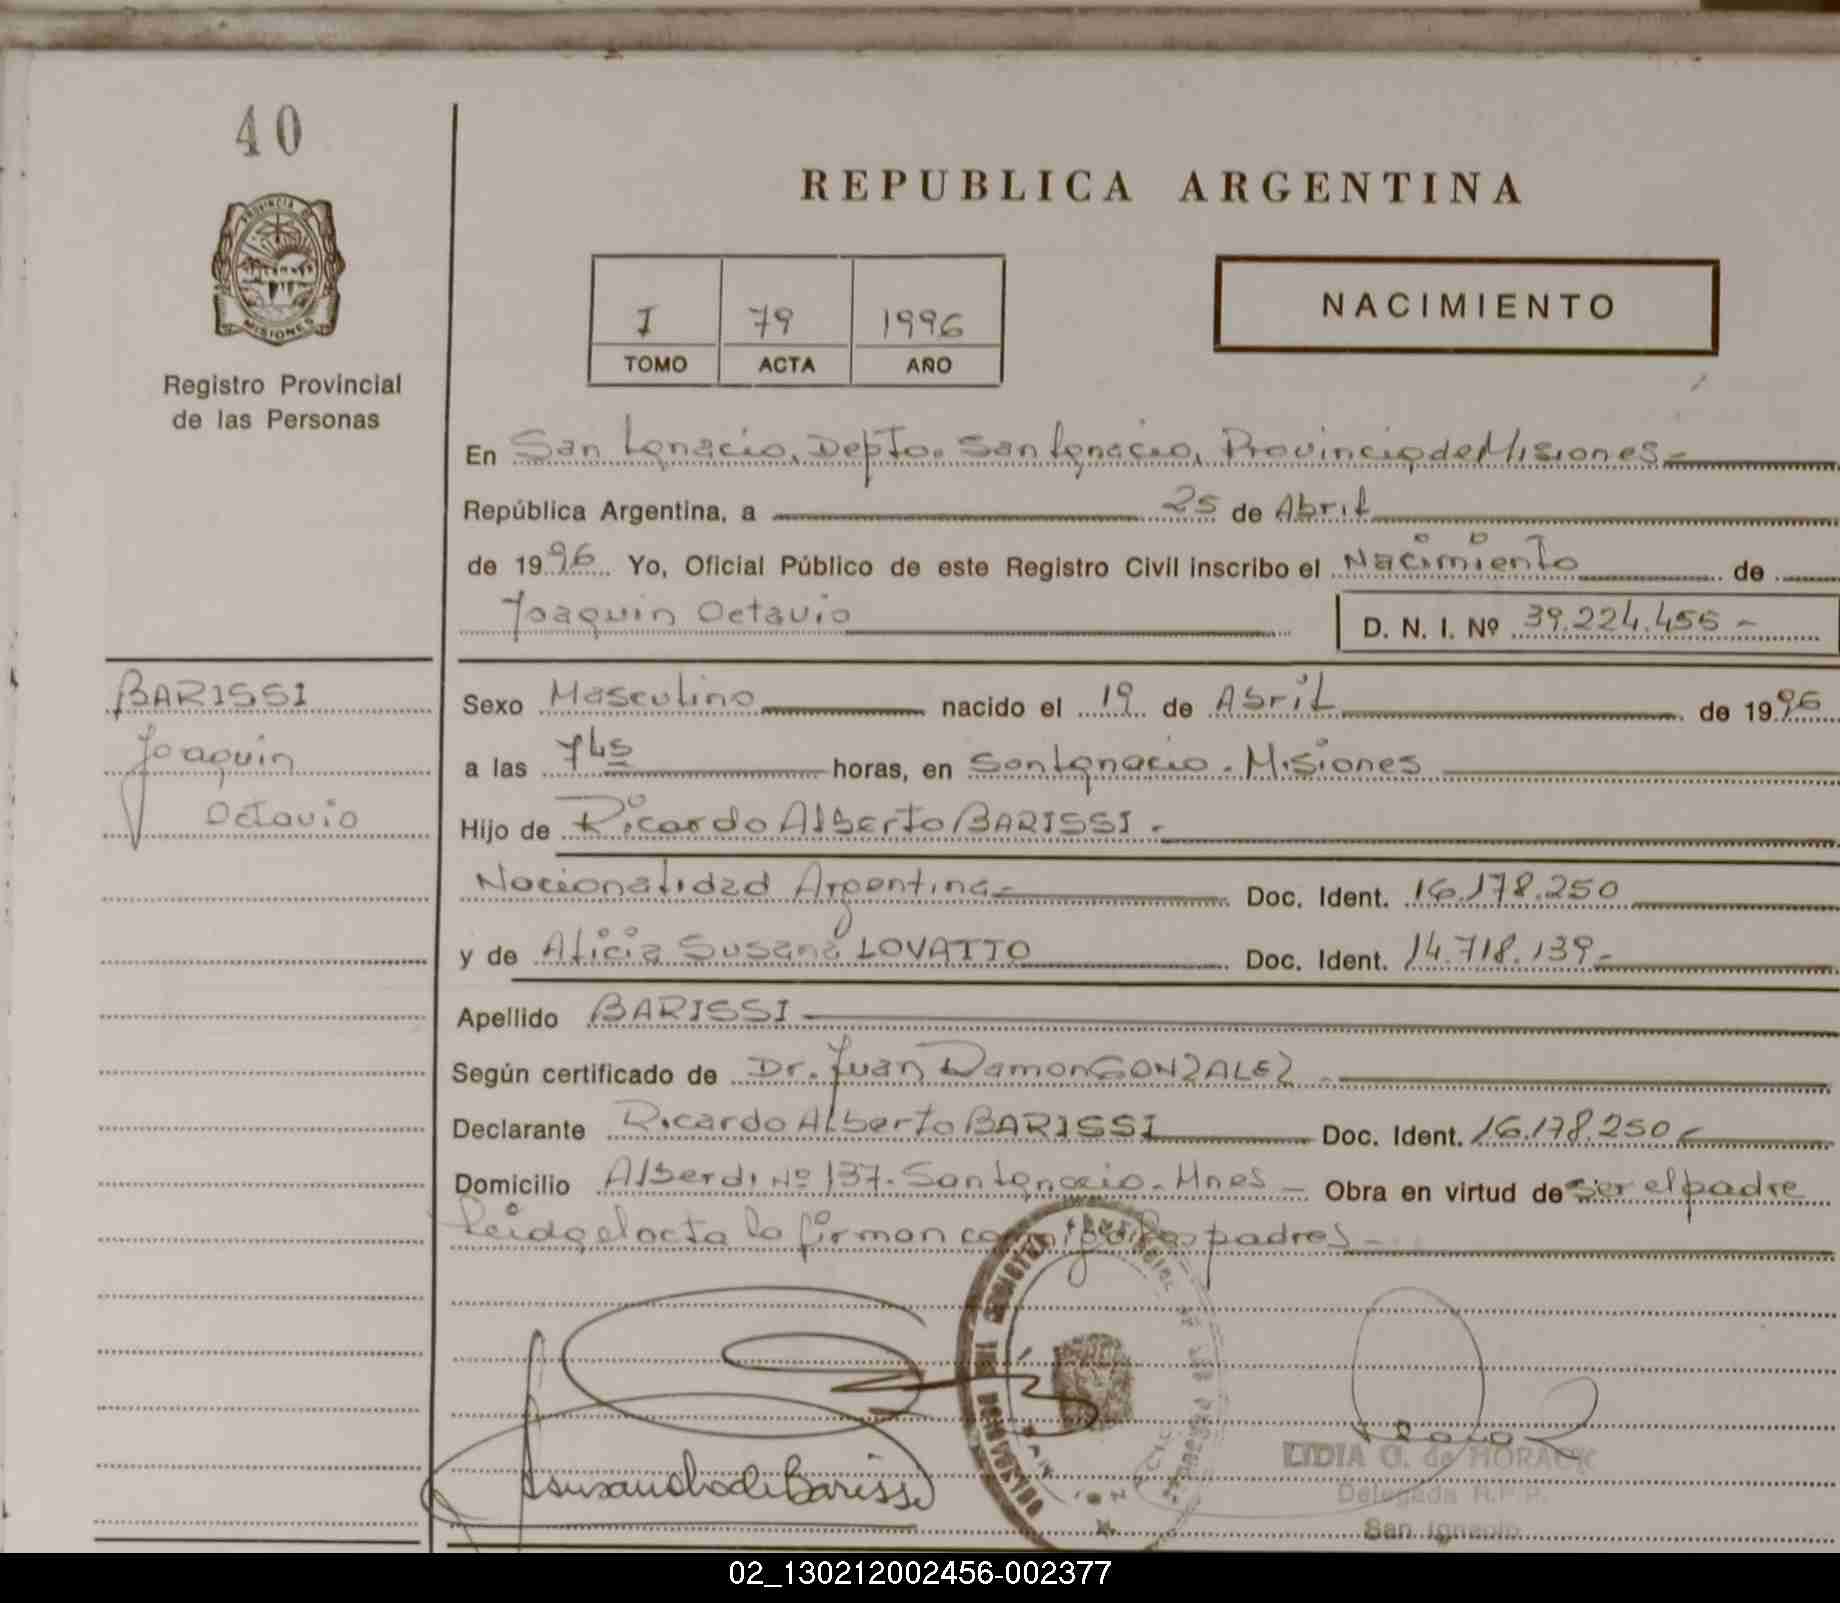 40
PROVINCIA DE
MISIONES
Registro Provincial
de las Personas
REPUBLICA ARGENTINA
I 79 1996
TOMO ACTA AÑO
NACIMIENTO
En San Ignacio, Depto. San Ignacio, Provincia de Misiones.-
República Argentina, a 25 de Abril
de 1996 Yo, Oficial Público de este Registro Civil inscribo el Nacimiento de
Joaquin Octavio D. N. I. Nº 39.224.455 -
BARISSI
Joaquin
Octavio
Sexo Masculino nacido el 19 de Abril de 1996
a las 7hs horas, en San Ignacio - Misiones
Hijo de Ricardo Alberto BARISSI -
Nacionalidad Argentina - Doc. Ident. 16.178.250
y de Alicia Susana LOVATTO Doc. Ident. 14.718.139-
Apellido BARISSI
Según certificado de Dr. Juan Ramon GONZALEZ -
Declarante Ricardo Alberto BARISSI Doc. Ident. 16.178.250-
Domicilio Alberdi Nº 137- San Ignacio - Mnes - Obra en virtud de ser el padre
Leida el acta la firman padres -
LIDIA G. de HORACK
Delegada R.P.P.
San Ignacio
02_130212002456-002377